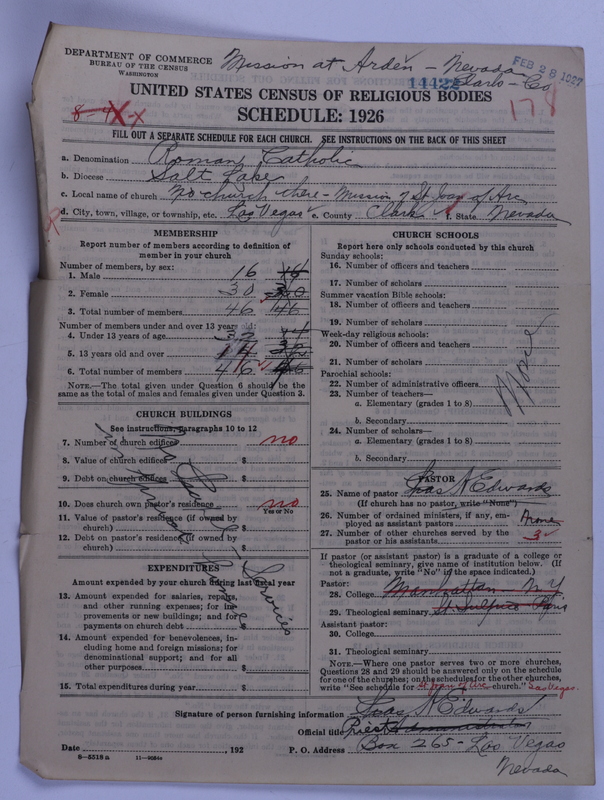 DEPARTMENT OF COMMERCE
BUREAU OF THE CENSUS
WASHINGTON
Mission at Arden - Nevada
Clark - Co
14422
FEB 28 1927
178
UNITED STATES CENSUS OF RELIGIOUS BODIES
SCHEDULE: 1926
FILL OUT A SEPARATE SCHEDULE FOR EACH CHURCH. SEE INSTRUCTIONS ON THE BACK OF THIS SHEET
a. Denomination Roman Catholic
b. Diocese Salt Lake
c. Local name of church No church there - Mission of St Joan of Arc
d. City, town, village, or township, etc. Las Vegas e. County Clark f. State Nevada
MEMBERSHIP
Report number of members according to definition of
member in your church
Number of members, by sex:
1. Male 16 16
2. Female 30 30
3. Total number of members 46 46
Number of members under and over 13 years old:
4. Under 13 years of age 32 14
5. 13 years old and over 14 32
6. Total number of members 46 46
NOTE.—The total given under Question 6 should be the
same as the total of males and females given under Question 3.
CHURCH BUILDINGS
See instructions, paragraphs 10 to 12
7. Number of church edifices no
8. Value of church edifices $
9. Debt on church edifices $
10. Does church own pastor's residence no
Yes or No
11. Value of pastor's residence (if owned by
church) $
12. Debt on pastor's residence (if owned by
church) $
EXPENDITURES
Amount expended by your church during last fiscal year
13. Amount expended for salaries, repairs,
and other running expenses; for im-
provements or new buildings; and for
payments on church debt $
14. Amount expended for benevolences, in-
cluding home and foreign missions; for
denominational support; and for all
other purposes $
15. Total expenditures during year $
Services
CHURCH SCHOOLS
Report here only schools conducted by this church
Sunday schools:
16. Number of officers and teachers
17. Number of scholars
Summer vacation Bible schools:
18. Number of officers and teachers
19. Number of scholars
Week-day religious schools:
20. Number of officers and teachers
21. Number of scholars
Parochial schools:
22. Number of administrative officers
23. Number of teachers—
a. Elementary (grades 1 to 8)
b. Secondary
24. Number of scholars—
a. Elementary (grades 1 to 8)
b. Secondary
None
PASTOR
25. Name of pastor Chas N Edwards
(If church has no pastor, write "None")
26. Number of ordained ministers, if any, em-
ployed as assistant pastors None
27. Number of other churches served by the
pastor or his assistants 3
If pastor (or assistant pastor) is a graduate of a college or
theological seminary, give name of institution below. (If
not a graduate, write "No" in the space indicated.)
Pastor:
28. College Manhattan - N.Y.
29. Theological seminary St Sulpice Paris
Assistant pastor:
30. College
31. Theological seminary
NOTE.—Where one pastor serves two or more churches,
Questions 28 and 29 should be answered only on the schedule
for one of the churches; on the schedules for the other churches,
write "See schedule for St Joan of Arc church." Las Vegas.
Signature of person furnishing information Chas N Edwards
Official title Priest Administrator
Date , 192 P. O. Address Box 265 - Las Vegas
Nevada
8—5518 a 11—9064